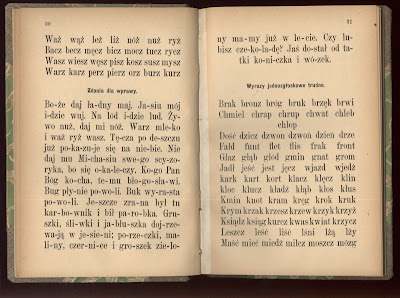 80
Waż wąż leż liż nóż nuż ryż
Bacz becz męcz biez mocz tucz rycz
Wasz wiesz węsz pisz kosz susz mysz
Warz karz perz pierz orz burz kurz
Zdania dla wprawy.
Bo-że daj ła-dny maj. Ja-siu mój
i-dzie wuj. Na lód i-dzie lud. Ży-
wo nuż, daj mi nóż. Warz mle-ko
i waż ryż wasz. Tę-cza po de-szczu
już po-ka-zu-je się na nie-bie. Nie
daj mu Mi-cha-siu swe-go scy-zo-
ryka, bo się o-ka-le-czy. Ko-go Pan
Bóg ko-cha, te-mu bło-go-sła-wi.
Bug pły-nie po-wo-li. Buk wy-ra-sta
po-wo-li. Je-szcze zra-na był tu
kar-bo-wnik i bił pa-ro-bka. Gru-
szki, śli-wki i ja-błu-szka doj-rze-
wa-ją w je-sie-ni; po-rze-czki, ma-
li-ny, czer-ni-ce i gro-szek zie-lo-
81
ny ma-my już w le-cie. Czy lu-
bisz cze-ko-la-dę? Jaś do-stał od ta-
tki ko-ni-czka i wó-zek.
Wyrazy jednozgłoskowe trudne.
Brak brouz bróg bruk brzęk brwi
Chmiel chrap chrup chwat chleb
chłop
Dość dzicz dzwon dzwoń dzień drze
Fałd funt flet flis frak front
Głaz głąb głód gmin gnat grom
Jadł jeść jest jęcz wjazd wjedź
kark kart kort klacz klęcz klin
kloc klucz kładź kłąb kłos kłus
Kmin knot kram kręg krok kruk
Krym krzak krzesz krzew krzyk krzyż
Ksiądz ksiąg kurcz kwas kwiat krzycz
Leszcz leść liść lśni lżą lży
Maść mieć miedź milcz moszcz mózg